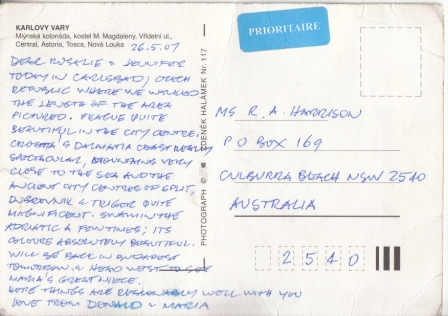 KARLOVY VARY
Mlýnská kolonáda, kostel M. Magdaleny, Vřídelní ul.,
Central, Astoria, Tosca, Nová Louka
26.5.07
DEAR ROSALIE & JENNIFER
TODAY IN CARLSBAD, CZECH
REPUBLIC WHERE WE WALKED
THE LENGTH OF THE AREA
PICTURED. PRAGUE QUITE
BEAUTIFUL IN THE CITY CENTRE.
CROATIA'S DALMATIA COAST REALLY
SPECTACULAR, MOUNTAINS VERY
CLOSE TO THE SEA AND THE
ANCIENT CITY CENTRES OF SPLIT,
DUBROVNIK & TROGIR QUITE
MAGNIFICENT. SWAM IN THE
ADRIATIC A FEW TIMES; ITS
COLOURS ABSOLUTELY BEAUTIFUL.
WILL BE BACK IN BUDAPEST
TOMORROW & HEAD WEST TO SEE
MARIA'S GREAT NIECE.
HOPE THINGS ARE REASONABLY WELL WITH YOU
LOVE FROM DENALD & MARIA
PHOTOGRAPH © ZDENĚK HALÁMEK Nr. 117
PRIORITAIRE
MS R.A. HARRISON
P O BOX 169
CULBURRA BEACH NSW 2540
AUSTRALIA
2540